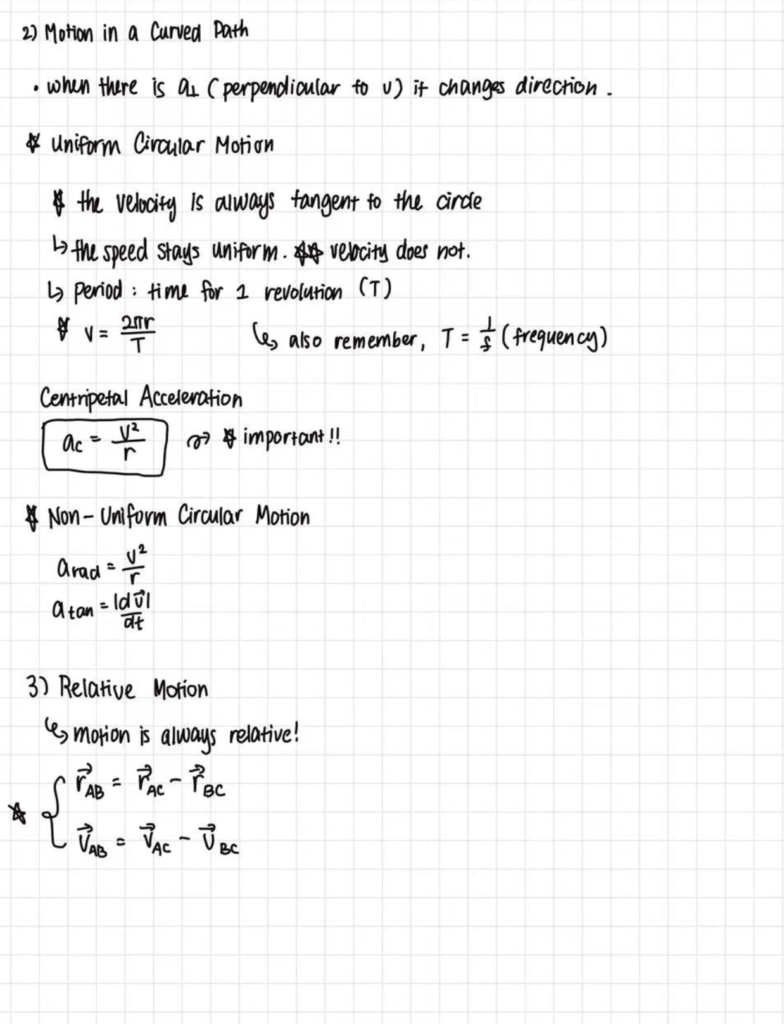 2) Motion in a Curved Path
• when there is a⊥ (perpendicular to v) it changes direction.
☆ Uniform Circular Motion
☆ the velocity is always tangent to the circle
↳ the speed stays uniform. ☆☆ velocity does not.
↳ period : time for 1 revolution (T)
☆ v = 2πr/T ↳ also remember, T = 1/f (frequency)
Centripetal Acceleration
ac = v²/r → ☆ important!!
☆ Non-Uniform Circular Motion
arad = v²/r
atan = |dv⃗|/dt
3) Relative Motion
↳ motion is always relative!
☆ { r⃗AB = r⃗AC - r⃗BC
v⃗AB = v⃗AC - v⃗BC